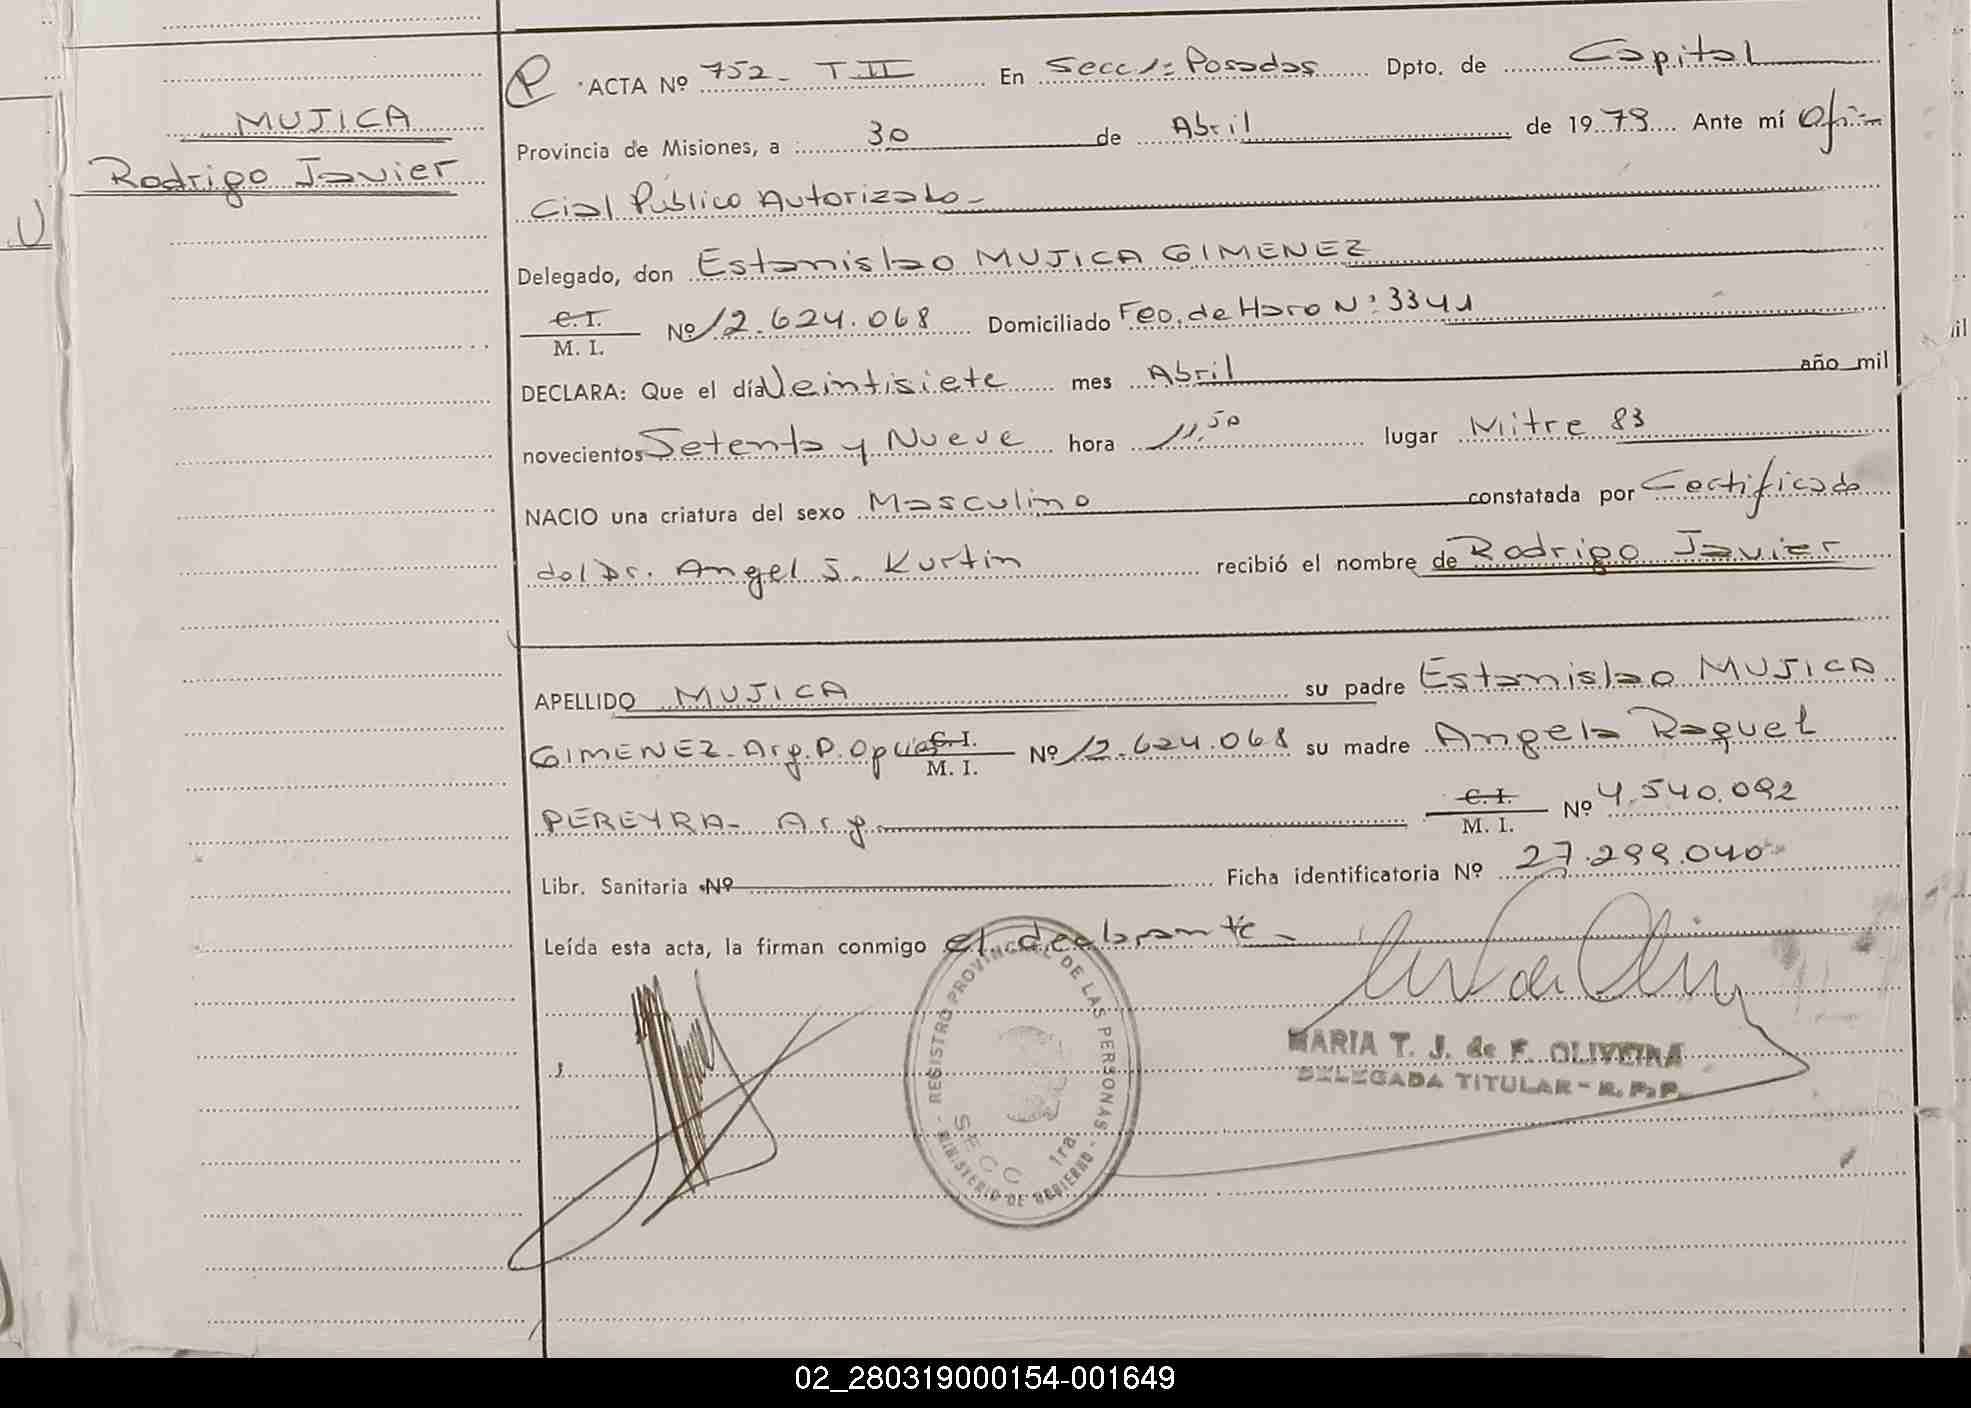 MUJICA
Rodrigo Javier
U
P ACTA Nº 752 - T II En Secc 1ª Posadas Dpto. de Capital
Provincia de Misiones, a 30 de Abril de 1979 Ante mí Ofi-
cial Público Autorizado -
Delegado, don Estanislao MUJICA GIMENEZ
C. I.
M. I. Nº 12.624.068 Domiciliado Fco. de Haro Nº 3341
DECLARA: Que el día Veintisiete mes Abril año mil
novecientos Setenta y Nueve hora 11,50 lugar Mitre 83
NACIO una criatura del sexo Masculino constatada por Certificado
del Dr. Angel S. Kurtin recibió el nombre de Rodrigo Javier
APELLIDO MUJICA su padre Estanislao MUJICA
GIMENEZ - Arg. P. Opción C. I. M. I. Nº 12.624.068 su madre Angela Raquel
PEREYRA - Arg. C. I. M. I. Nº 4.540.092
Libr. Sanitaria Nº Ficha identificatoria Nº 27.299.040
Leída esta acta, la firman conmigo el declarante -
REGISTRO PROVINCIAL DE LAS PERSONAS - MINISTERIO DE GOBIERNO -
SECC 1ra.
MARIA T. J. de F. OLIVEIRA
DELEGADA TITULAR - R. P. P.
02_280319000154-001649